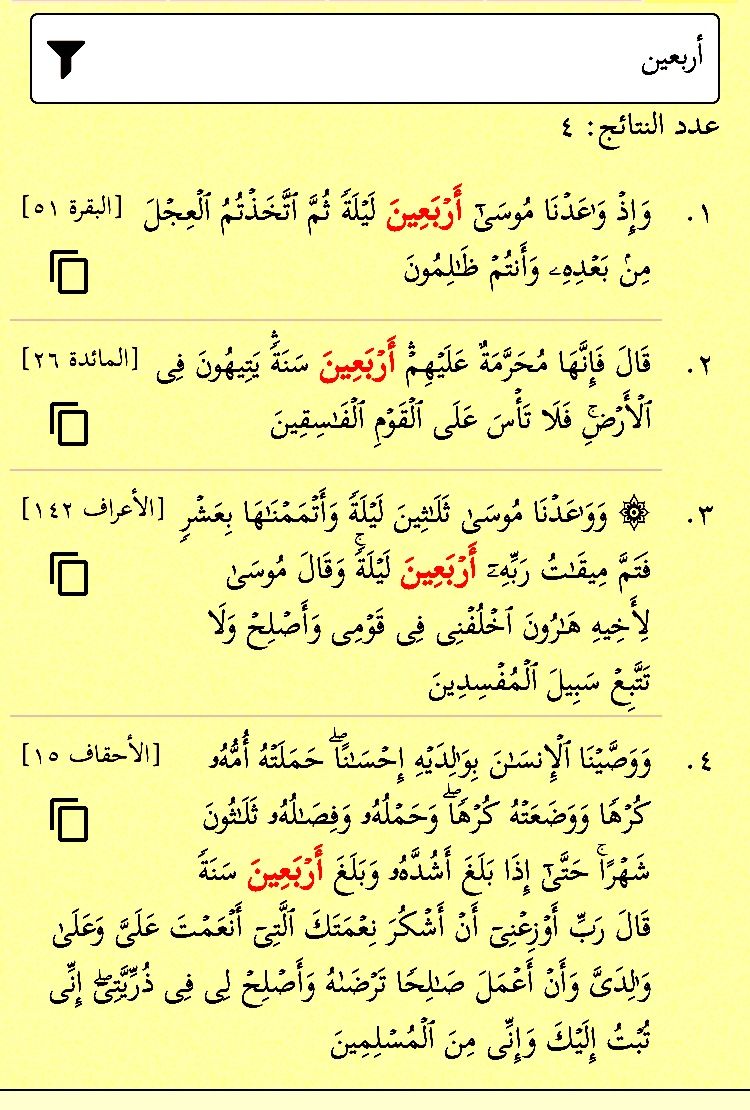 أربعين
عدد النتائج: ٤
١. وَإِذۡ وَٰعَدۡنَا مُوسَىٰٓ أَرۡبَعِينَ لَيۡلَةٗ ثُمَّ ٱتَّخَذۡتُمُ ٱلۡعِجۡلَ [البقرة ٥١]
مِنۢ بَعۡدِهِۦ وَأَنتُمۡ ظَٰلِمُونَ
٢. قَالَ فَإِنَّهَا مُحَرَّمَةٌ عَلَيۡهِمۡۛ أَرۡبَعِينَ سَنَةٗۛ يَتِيهُونَ فِي [المائدة ٢٦]
ٱلۡأَرۡضِۚ فَلَا تَأۡسَ عَلَى ٱلۡقَوۡمِ ٱلۡفَٰسِقِينَ
٣. ۞ وَوَٰعَدۡنَا مُوسَىٰ ثَلَٰثِينَ لَيۡلَةٗ وَأَتۡمَمۡنَٰهَا بِعَشۡرٖ [الأعراف ١٤٢]
فَتَمَّ مِيقَٰتُ رَبِّهِۦٓ أَرۡبَعِينَ لَيۡلَةٗۚ وَقَالَ مُوسَىٰ
لِأَخِيهِ هَٰرُونَ ٱخۡلُفۡنِي فِي قَوۡمِي وَأَصۡلِحۡ وَلَا
تَتَّبِعۡ سَبِيلَ ٱلۡمُفۡسِدِينَ
٤. وَوَصَّيۡنَا ٱلۡإِنسَٰنَ بِوَٰلِدَيۡهِ إِحۡسَٰنًاۖ حَمَلَتۡهُ أُمُّهُۥ [الأحقاف ١٥]
كُرۡهٗا وَوَضَعَتۡهُ كُرۡهٗاۖ وَحَمۡلُهُۥ وَفِصَٰلُهُۥ ثَلَٰثُونَ
شَهۡرًاۚ حَتَّىٰٓ إِذَا بَلَغَ أَشُدَّهُۥ وَبَلَغَ أَرۡبَعِينَ سَنَةٗ
قَالَ رَبِّ أَوۡزِعۡنِيٓ أَنۡ أَشۡكُرَ نِعۡمَتَكَ ٱلَّتِيٓ أَنۡعَمۡتَ عَلَيَّ وَعَلَىٰ
وَٰلِدَيَّ وَأَنۡ أَعۡمَلَ صَٰلِحٗا تَرۡضَىٰهُ وَأَصۡلِحۡ لِي فِي ذُرِّيَّتِيٓۖ إِنِّي
تُبۡتُ إِلَيۡكَ وَإِنِّي مِنَ ٱلۡمُسۡلِمِينَ